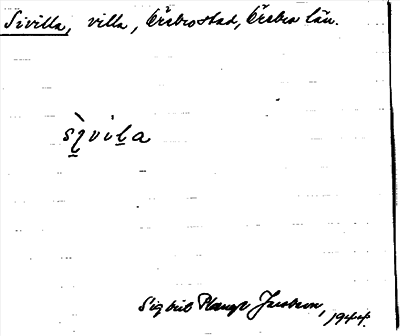 Sivilla, villa, Örebro stad, Örebro län.
sìvila
Sigbrit Plange Jacobson, 1944.